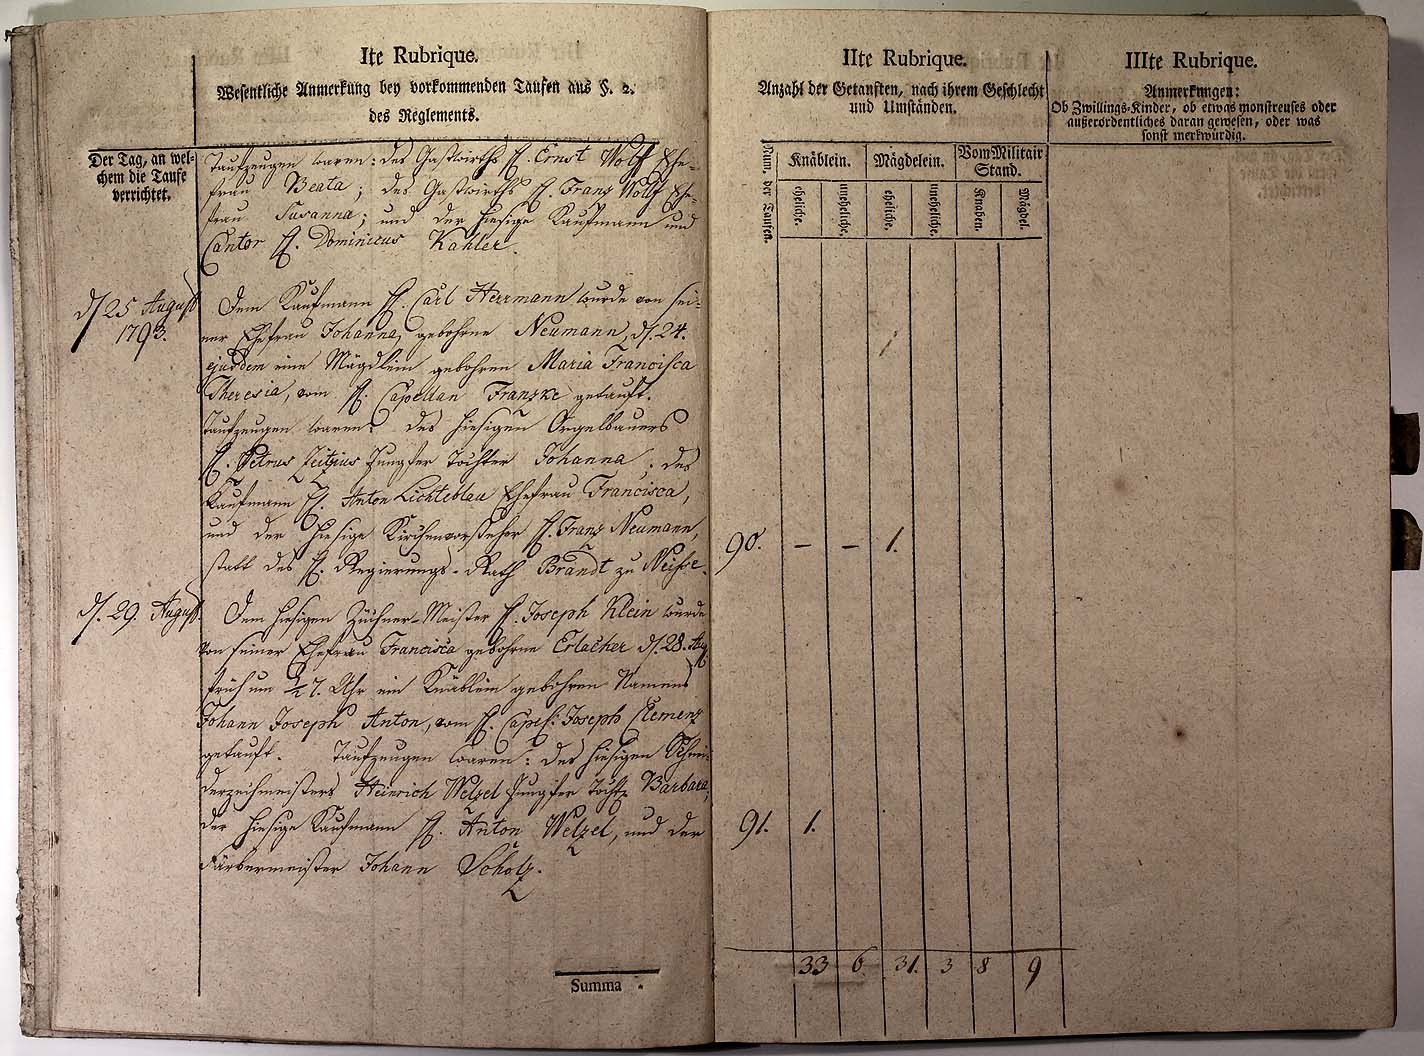 Ite Rubrique.
Wesentliche Anmerkung bey vorkommenden Taufen aus §. 2.
des Reglements.
Der Tag, an wel-
chem die Taufe
verrichtet.
Taufzeugen waren: des Gastwirths H. Ernst Wolf Ehe-
frau Beata; des Gastwirths H. Franz Wolf Ehe-
frau Susanna; und der hiesige Kaufmann und
Cantor H. Dominicus Kahler.
d. 25 August
1793.
Dem Kaufmann H. Carl Herrmann wurde von sei-
ner Ehefrau Johanna, gebohrne Neumann, d. 24.
ejusdem eine Mägdlein gebohren Maria Francisca
Theresia, vom H. Capellan Franzke getauft.
Taufzeugen waren: des hiesigen Orgelbauers
H. Petrus Zeitzius Jungfer Tochter Johanna. des
Kaufmann H. Anton Lichteblau Ehefrau Francisca,
und der hiesige Kirchenvorsteher H. Franz Neumann,
statt des H. Regierungs-Rath Brandt zu Neisse.
d. 29. August.
Dem hiesigen Züchner-Meister H. Joseph Klein wurde
von seiner Ehefrau Francisca gebohrne Erlacher d. 28. Aug
früh um 1/2 7. Uhr ein Knäblein gebohren Namens
Johann Joseph Anton, vom H. Capel: Joseph Clemenz
getauft. Taufzeugen waren: des hiesigen
Heinrich Welzel Jungfer Tochter Barbara;
der hiesige Kaufmann H. Anton Welzel, und der
Färbermeister Johann Scholz.
Summa
IIte Rubrique.
Anzahl der Getauften, nach ihrem Geschlecht
und Umständen.
Num. der Taufen.
Knäblein.
Mägdelein.
Vom Militair
Stand.
eheliche.
uneheliche.
eheliche.
uneheliche.
Knaben.
Mägdel.
90. – – 1.
91. 1.
33 6 31. 3 8 9
IIIte Rubrique.
Anmerkungen:
Ob Zwillings-Kinder, ob etwas monstreuses oder
außerordentliches daran gewesen, oder was
sonst merkwürdig.